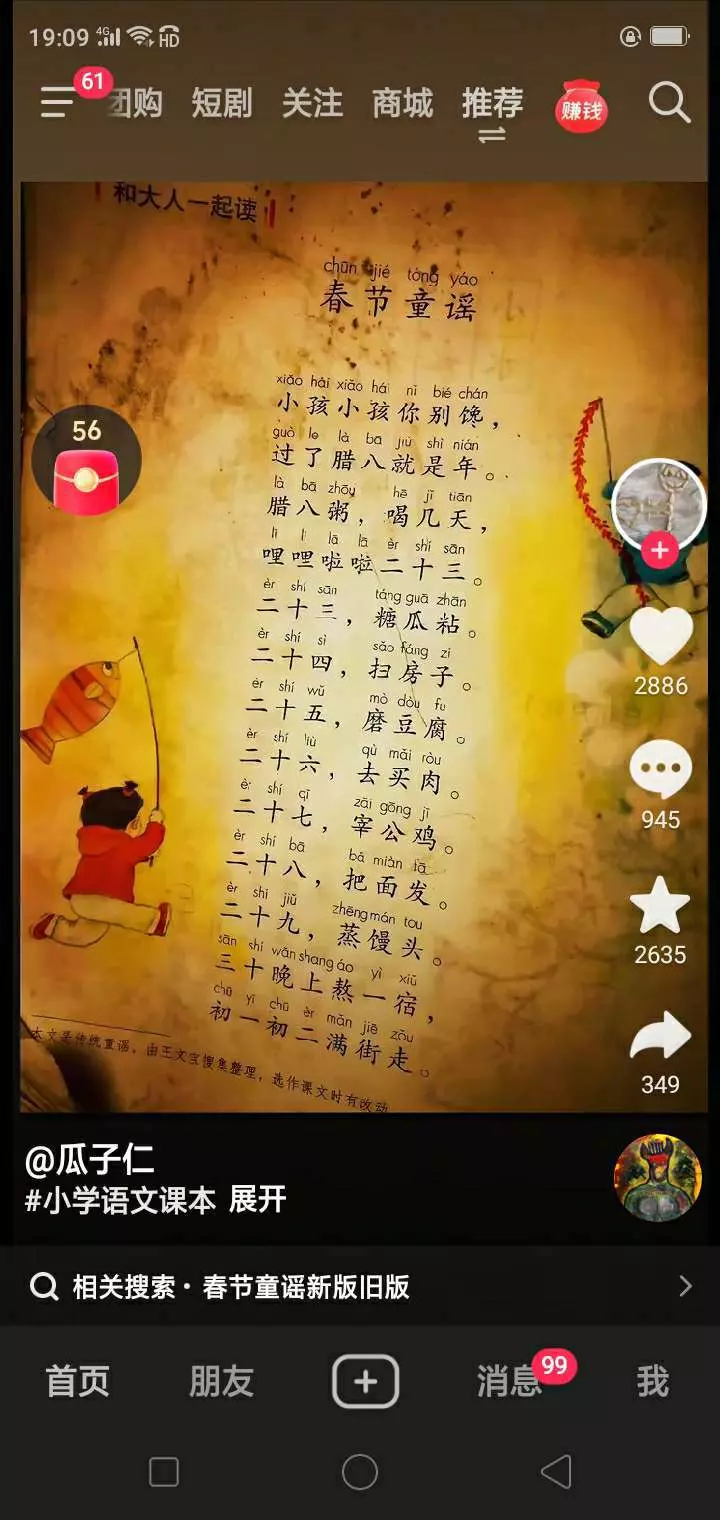 19:09 4G HD
61
团购 短剧 关注 商城 推荐 赚钱
和大人一起读
chūn jié tóng yáo
春节童谣
xiǎo hái xiǎo hái nǐ bié chán
小孩小孩你别馋，
guò le là bā jiù shì nián
过了腊八就是年。
là bā zhōu hē jǐ tiān
腊八粥，喝几天，
lī lī lā lā èr shí sān
哩哩啦啦二十三。
èr shí sān táng guā zhān
二十三，糖瓜粘。
èr shí sì sǎo fáng zi
二十四，扫房子。
èr shí wǔ mò dòu fu
二十五，磨豆腐。
èr shí liù qù mǎi ròu
二十六，去买肉。
èr shí qī zǎi gōng jī
二十七，宰公鸡。
èr shí bā bǎ miàn fā
二十八，把面发。
èr shí jiǔ zhēng mán tou
二十九，蒸馒头。
sān shí wǎn shang áo yì xiǔ
三十晚上熬一宿，
chū yī chū èr mǎn jiē zǒu
初一初二满街走。
本文是传统童谣，由王文宝搜集整理，选作课文时有改动
56
2886
945
2635
349
@瓜子仁
#小学语文课本 展开
相关搜索·春节童谣新版旧版
首页 朋友 消息 99 我